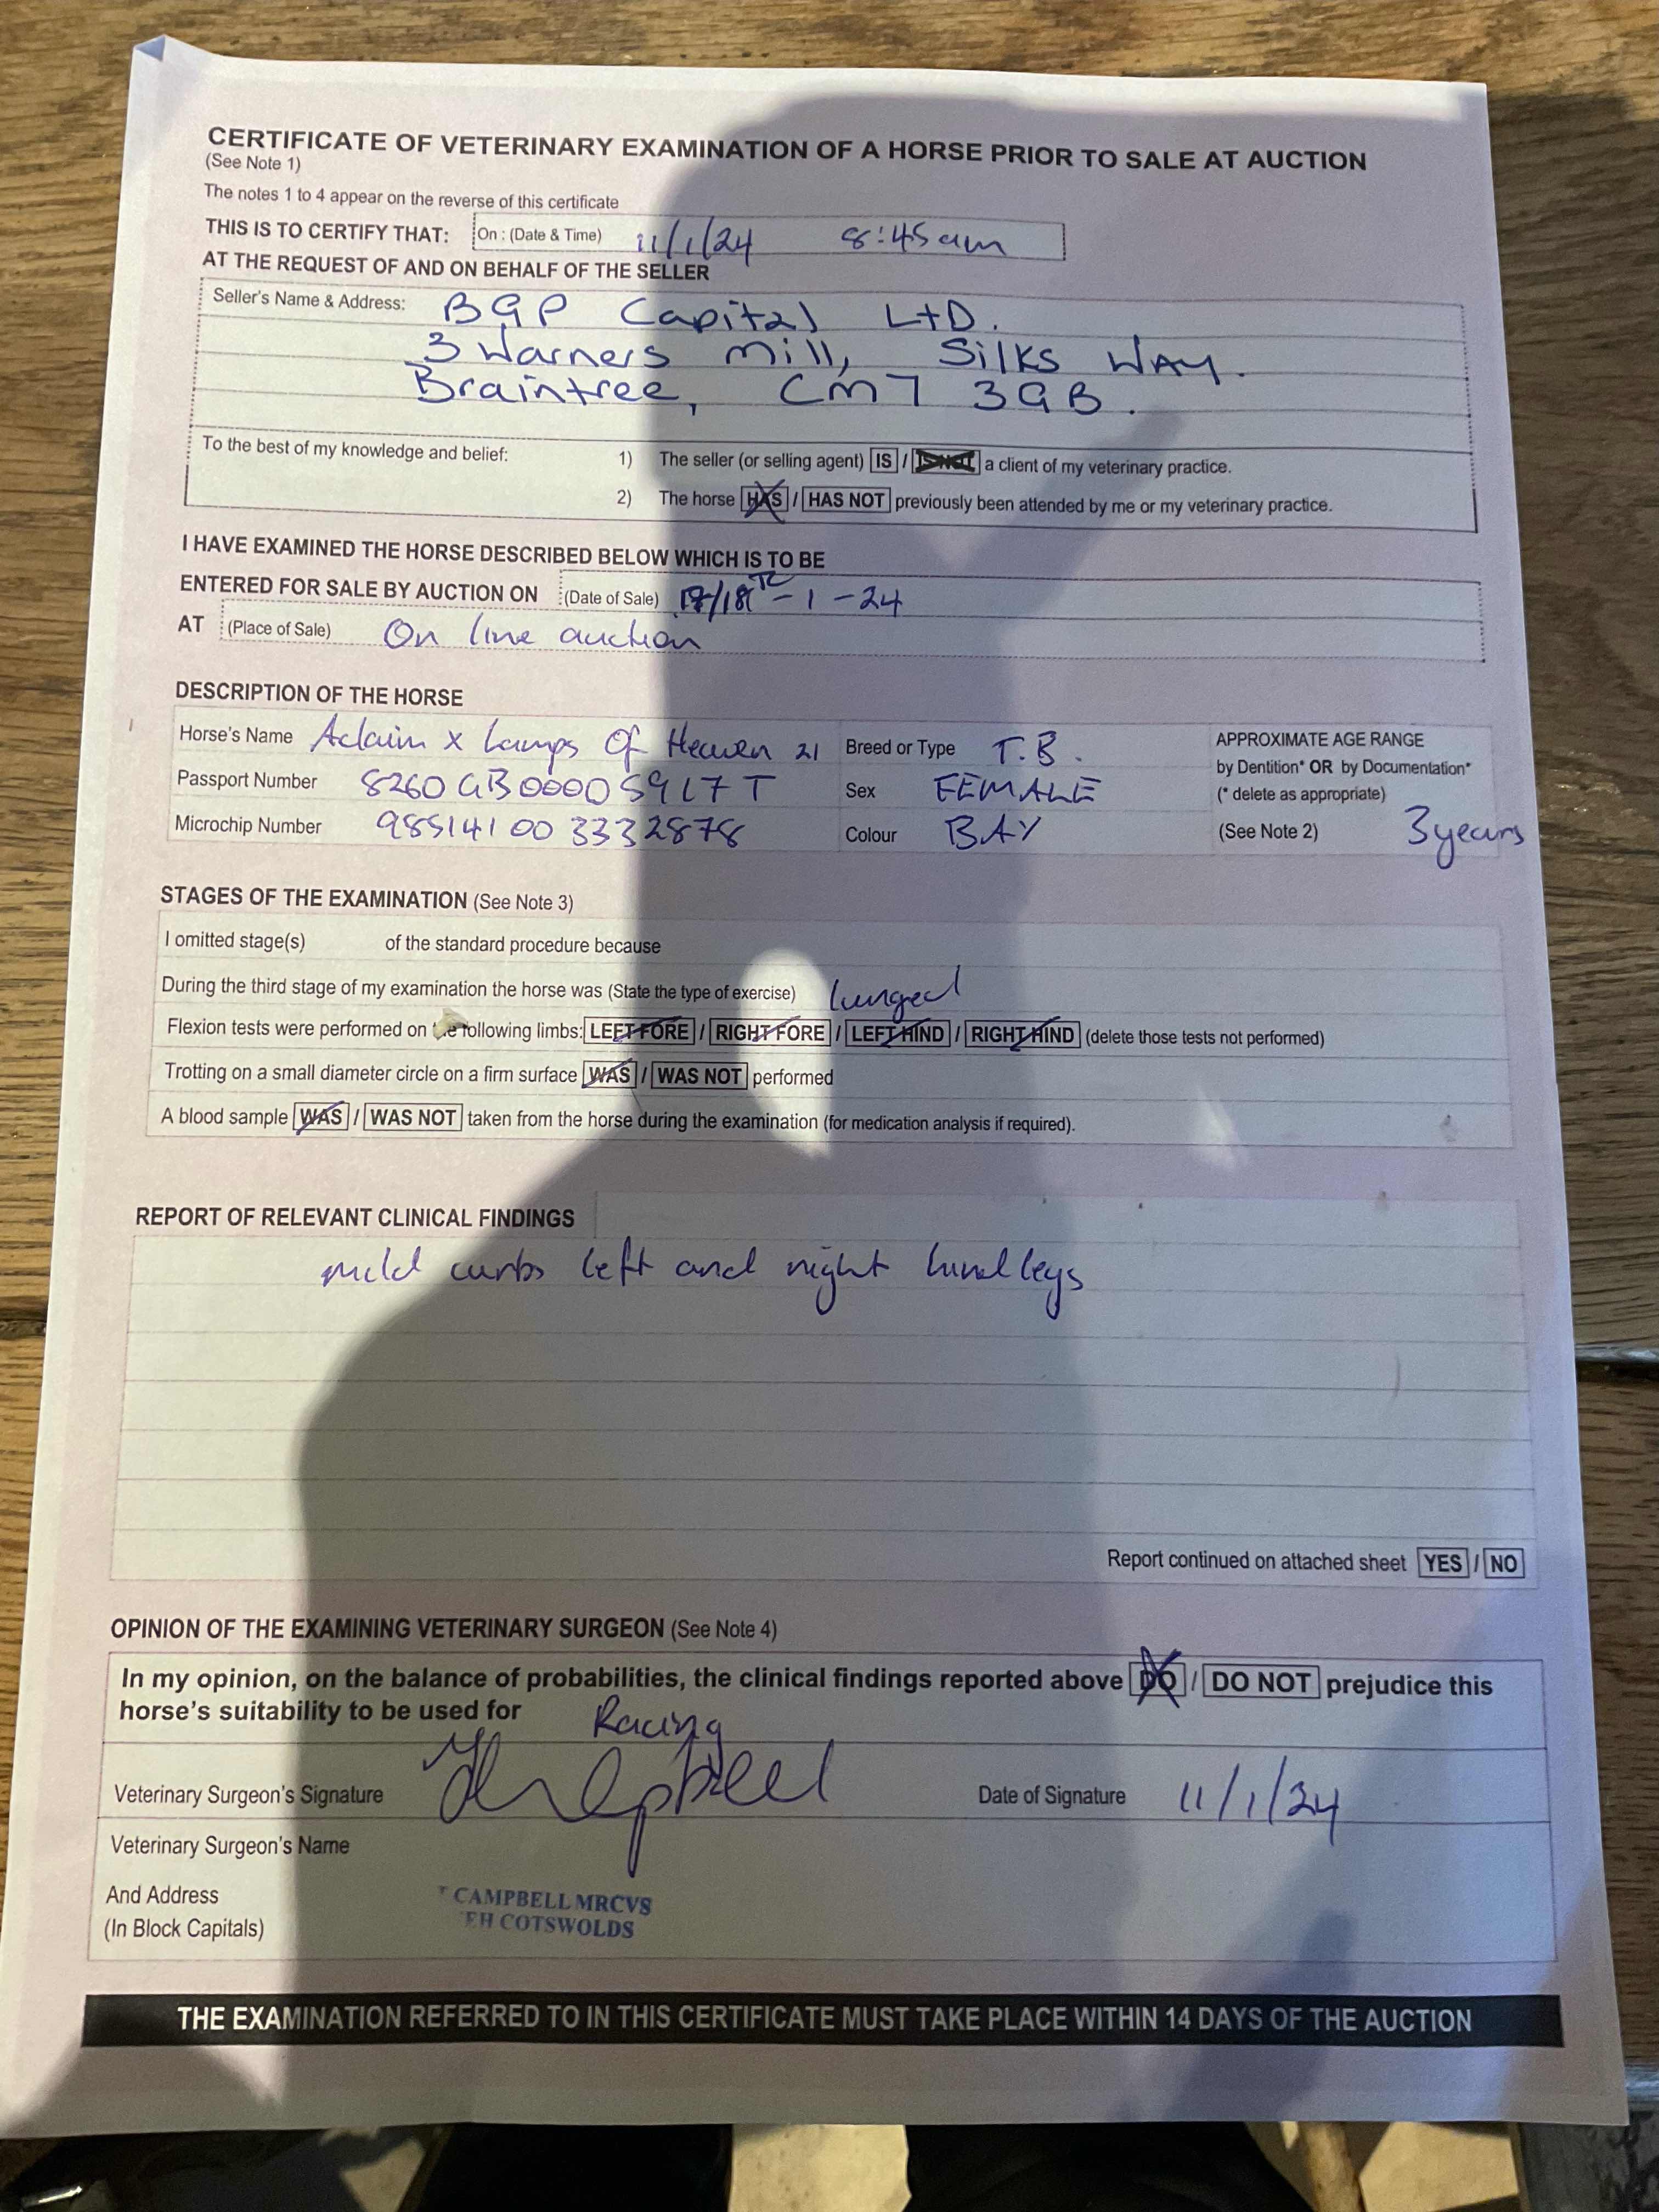 CERTIFICATE OF VETERINARY EXAMINATION OF A HORSE PRIOR TO SALE AT AUCTION
(See Note 1)
The notes 1 to 4 appear on the reverse of this certificate
THIS IS TO CERTIFY THAT: On : (Date & Time) 11/1/24 8:45am
AT THE REQUEST OF AND ON BEHALF OF THE SELLER
Seller's Name & Address: BGP Capital LtD.
3 Warners mill, Silks WAY.
Braintree, CM7 3GB.
To the best of my knowledge and belief: 1) The seller (or selling agent) IS / IS NOT a client of my veterinary practice.
2) The horse HAS / HAS NOT previously been attended by me or my veterinary practice.
I HAVE EXAMINED THE HORSE DESCRIBED BELOW WHICH IS TO BE
ENTERED FOR SALE BY AUCTION ON (Date of Sale) 17/18th - 1 - 24
AT (Place of Sale) On line auction
DESCRIPTION OF THE HORSE
Horse's Name Aclaim x Lamps Of Heaven 21 Breed or Type T.B. APPROXIMATE AGE RANGE
by Dentition* OR by Documentation*
Passport Number 8260GB00005917T Sex FEMALE (* delete as appropriate)
Microchip Number 985141003332878 Colour BAY (See Note 2) 3years
STAGES OF THE EXAMINATION (See Note 3)
I omitted stage(s) of the standard procedure because
During the third stage of my examination the horse was (State the type of exercise) lunged
Flexion tests were performed on the following limbs: LEFT FORE / RIGHT FORE / LEFT HIND / RIGHT HIND (delete those tests not performed)
Trotting on a small diameter circle on a firm surface WAS / WAS NOT performed
A blood sample WAS / WAS NOT taken from the horse during the examination (for medication analysis if required).
REPORT OF RELEVANT CLINICAL FINDINGS
mild curbs left and right hind legs
Report continued on attached sheet YES / NO
OPINION OF THE EXAMINING VETERINARY SURGEON (See Note 4)
In my opinion, on the balance of probabilities, the clinical findings reported above DO / DO NOT prejudice this
horse's suitability to be used for Racing
Veterinary Surgeon's Signature Date of Signature 11/1/24
Veterinary Surgeon's Name
And Address CAMPBELL MRCVS
(In Block Capitals) EH COTSWOLDS
THE EXAMINATION REFERRED TO IN THIS CERTIFICATE MUST TAKE PLACE WITHIN 14 DAYS OF THE AUCTION